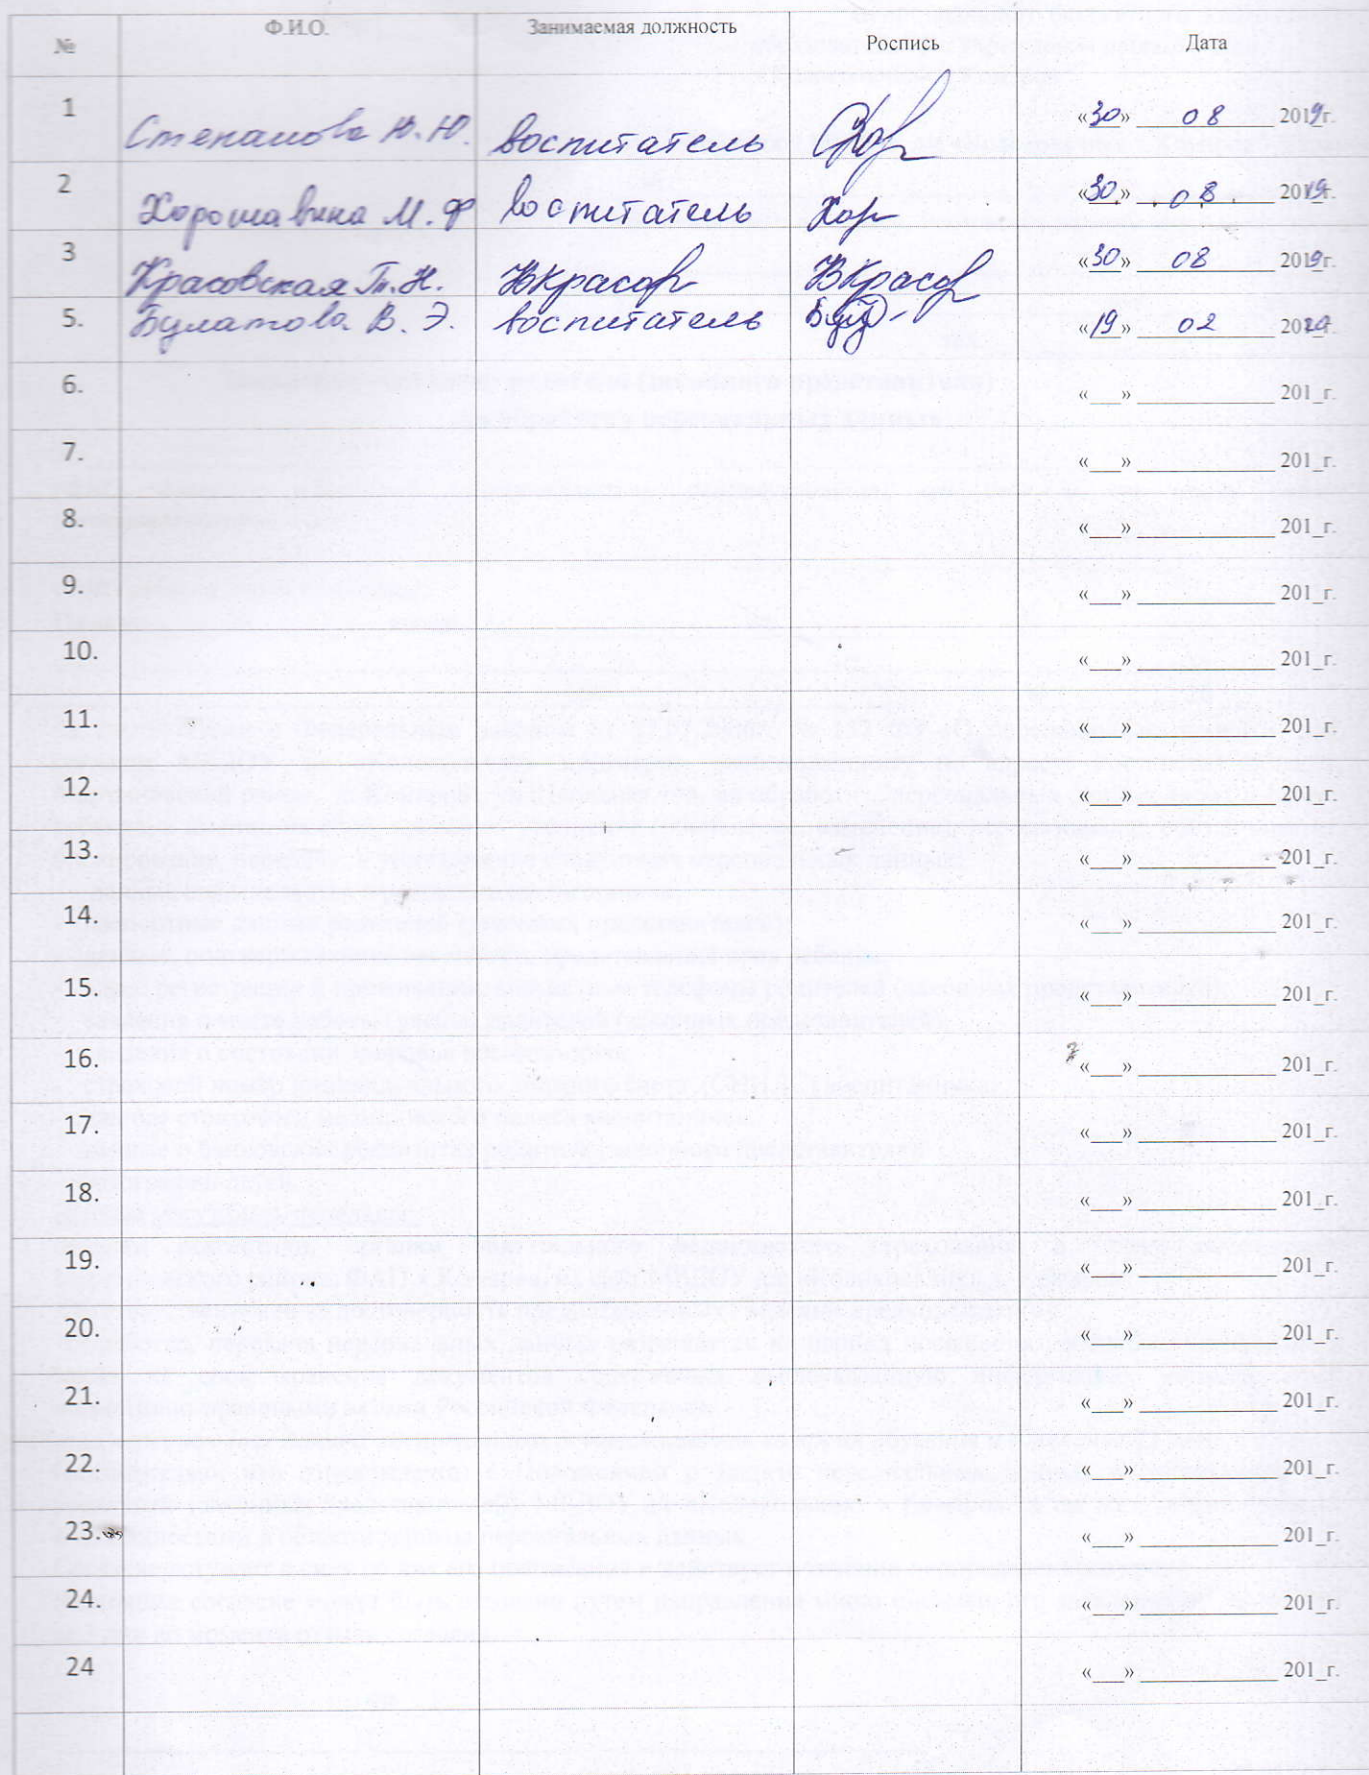 № Ф.И.О. Занимаемая должность Роспись Дата
1 Степанова Н.Ю. воспитатель «30» 08 2019г.
2 Хорошавина М.Ф воспитатель Хор «30» 08 2019г.
3 Красовская Т.Н. НКрасов НКрасов «30» 08 2019г.
5. Булатова В.Э. воспитатель «19» 02 2020г.
6. «___» _________ 201_г.
7. «___» _________ 201_г.
8. «___» _________ 201_г.
9. «___» _________ 201_г.
10. «___» _________ 201_г.
11. «___» _________ 201_г.
12. «___» _________ 201_г.
13. «___» _________ 201_г.
14. «___» _________ 201_г.
15. «___» _________ 201_г.
16. «___» _________ 201_г.
17. «___» _________ 201_г.
18. «___» _________ 201_г.
19. «___» _________ 201_г.
20. «___» _________ 201_г.
21. «___» _________ 201_г.
22 «___» _________ 201_г.
23. «___» _________ 201_г.
24. «___» _________ 201_г.
24 «___» _________ 201_г.